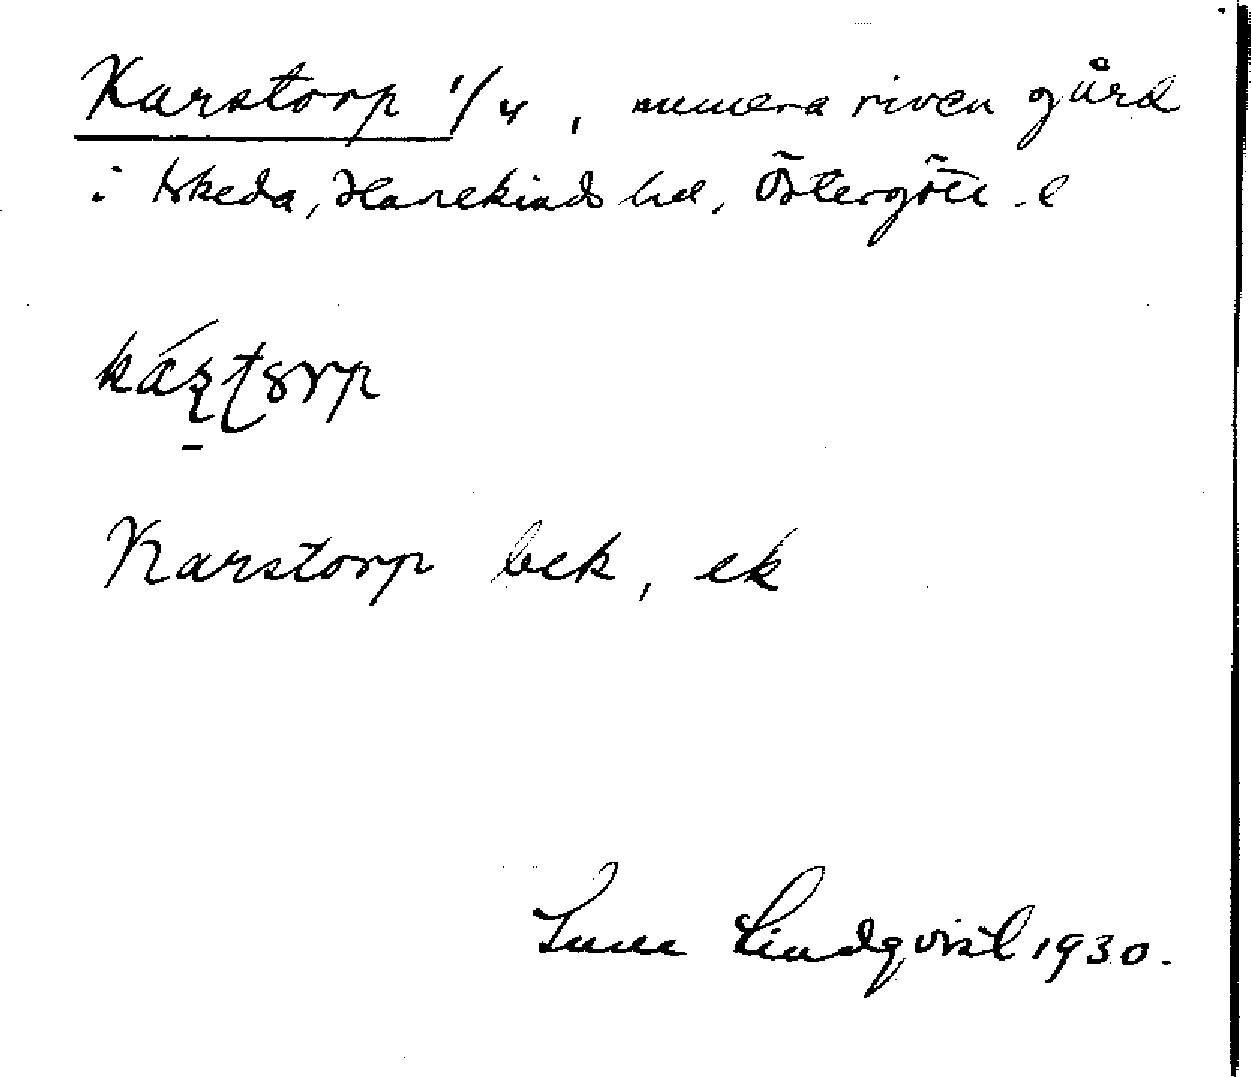 Karstorp 1/4, numera riven gård
i Askeda, Hanekinds hd, Östergötl. l
káʂʈorp
Karstorp bek, ek
Sune Lindqvist 1930.